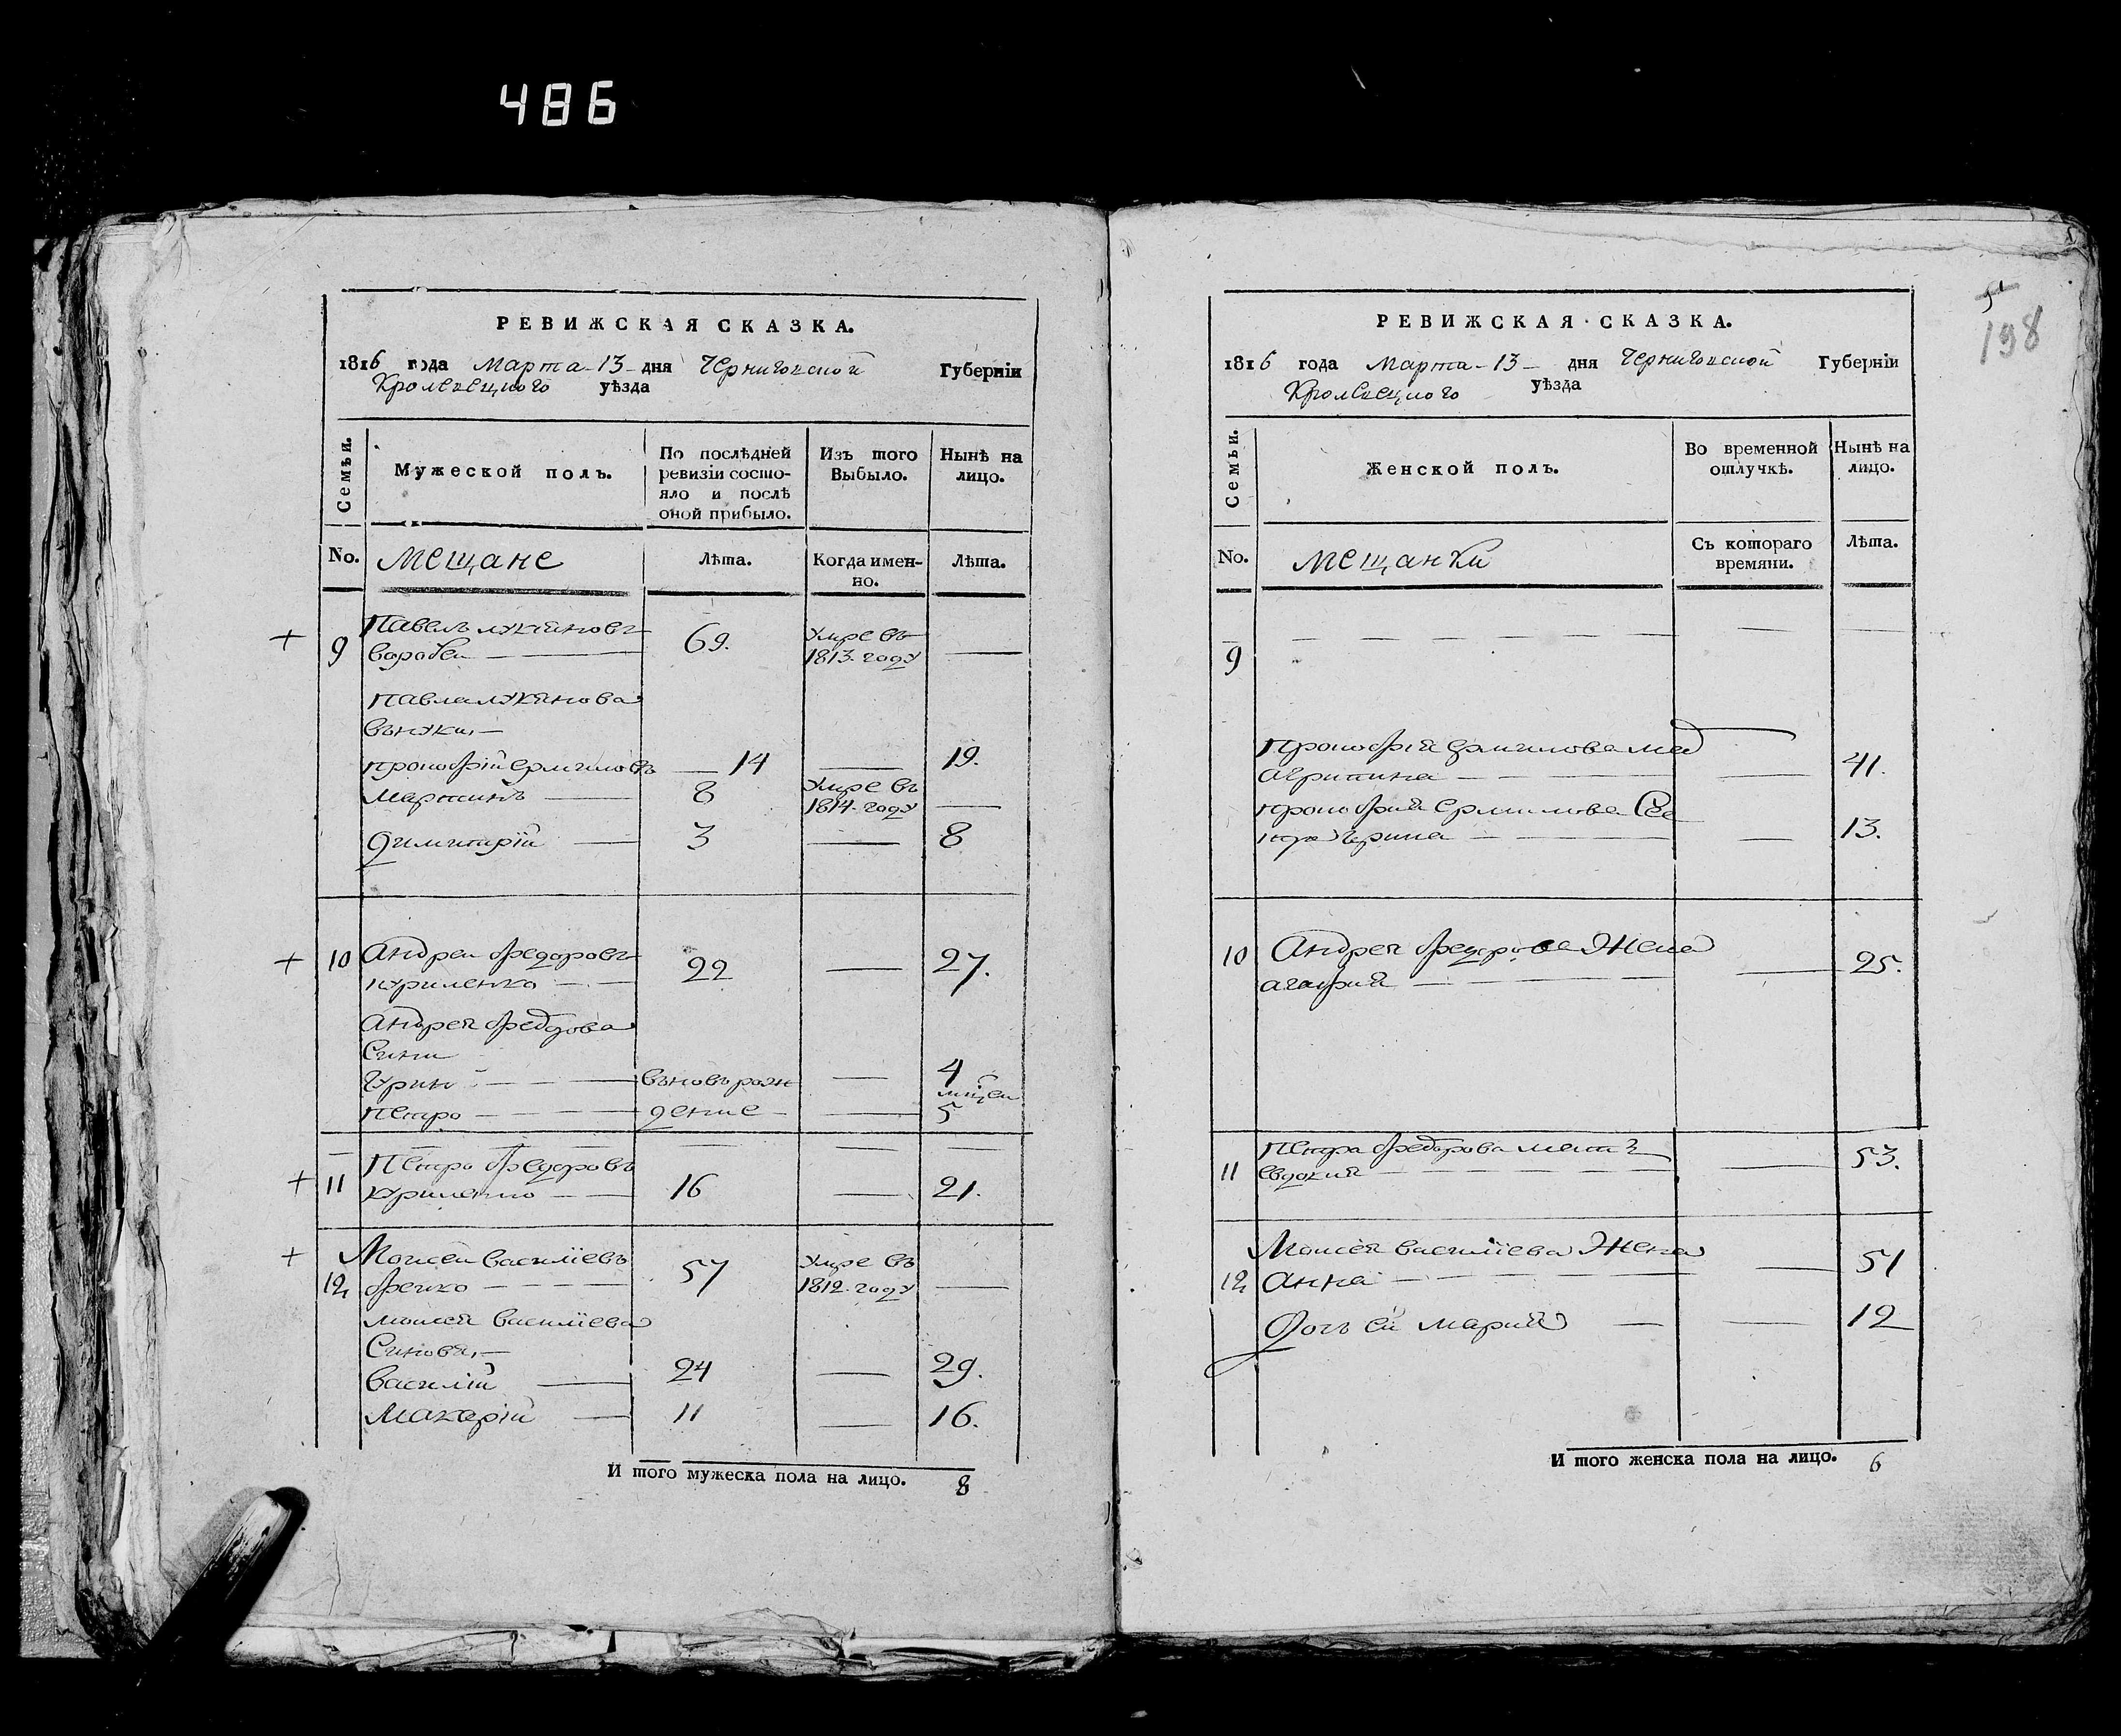 486
РЕВИЖСКАЯ СКАЗКА.
1816 года Марта - 13 - дня Черниговской Губерніи
Кролевецкого уѣзда
Семьи.
Мужеской полъ.
По послѣдней ревизіи состо-
яло и послѣ оной прибыло.
Изъ того Выбыло.
Нынѣ на лицо.
No. Мещане Лѣта. Когда имен-
но. Лѣта.
9 Павелъ лукяновъ 69. Умре въ
воробей 1813. году
Павла лукянова
внуки,
прокофій ермиловъ 14 19.
Мартинъ 8 Умре въ
1814. году
димитрій 3 8
10 Андрей федоровъ 22 27.
куриленко
Андрея федорова
Сини
Гурий вновь рож 4
мцей
петро дение 5
11 Петро федоровъ
куриленко 16 21.
12 Моисей василіевъ 57 Умре въ
1812. году
моисея василіева
Синовя,
василій 24 29.
Макарій 11 16.
И того мужеска пола на лицо. 8
51
198
РЕВИЖСКАЯ СКАЗКА.
1816 года Марта - 13 - дня Черниговской Губерніи
Кролевецкого уѣзда
Семьи.
Женской полъ.
Во временной
отлучкѣ.
Нынѣ на
лицо.
No. мещанки Съ котораго
времяни. Лѣта.
9
прокофія ермилова мат
агрипина 41.
прокофия ермилова Се
13.
10 Андрея федорова Жена
агафия 25.
11 петра федорова мать 53.
евдокия
12 Моисея василіева Жена 51
анна
Дочь ей мария 12
И того женска пола на лицо. 6